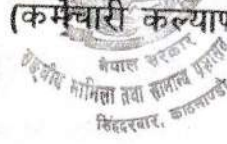 (कर्मचारी कल्याण
नेपाल सरकार
संघीय मामिला तथा सामान्य प्रशासन
सिंहदरबार, काठमाण्डौ